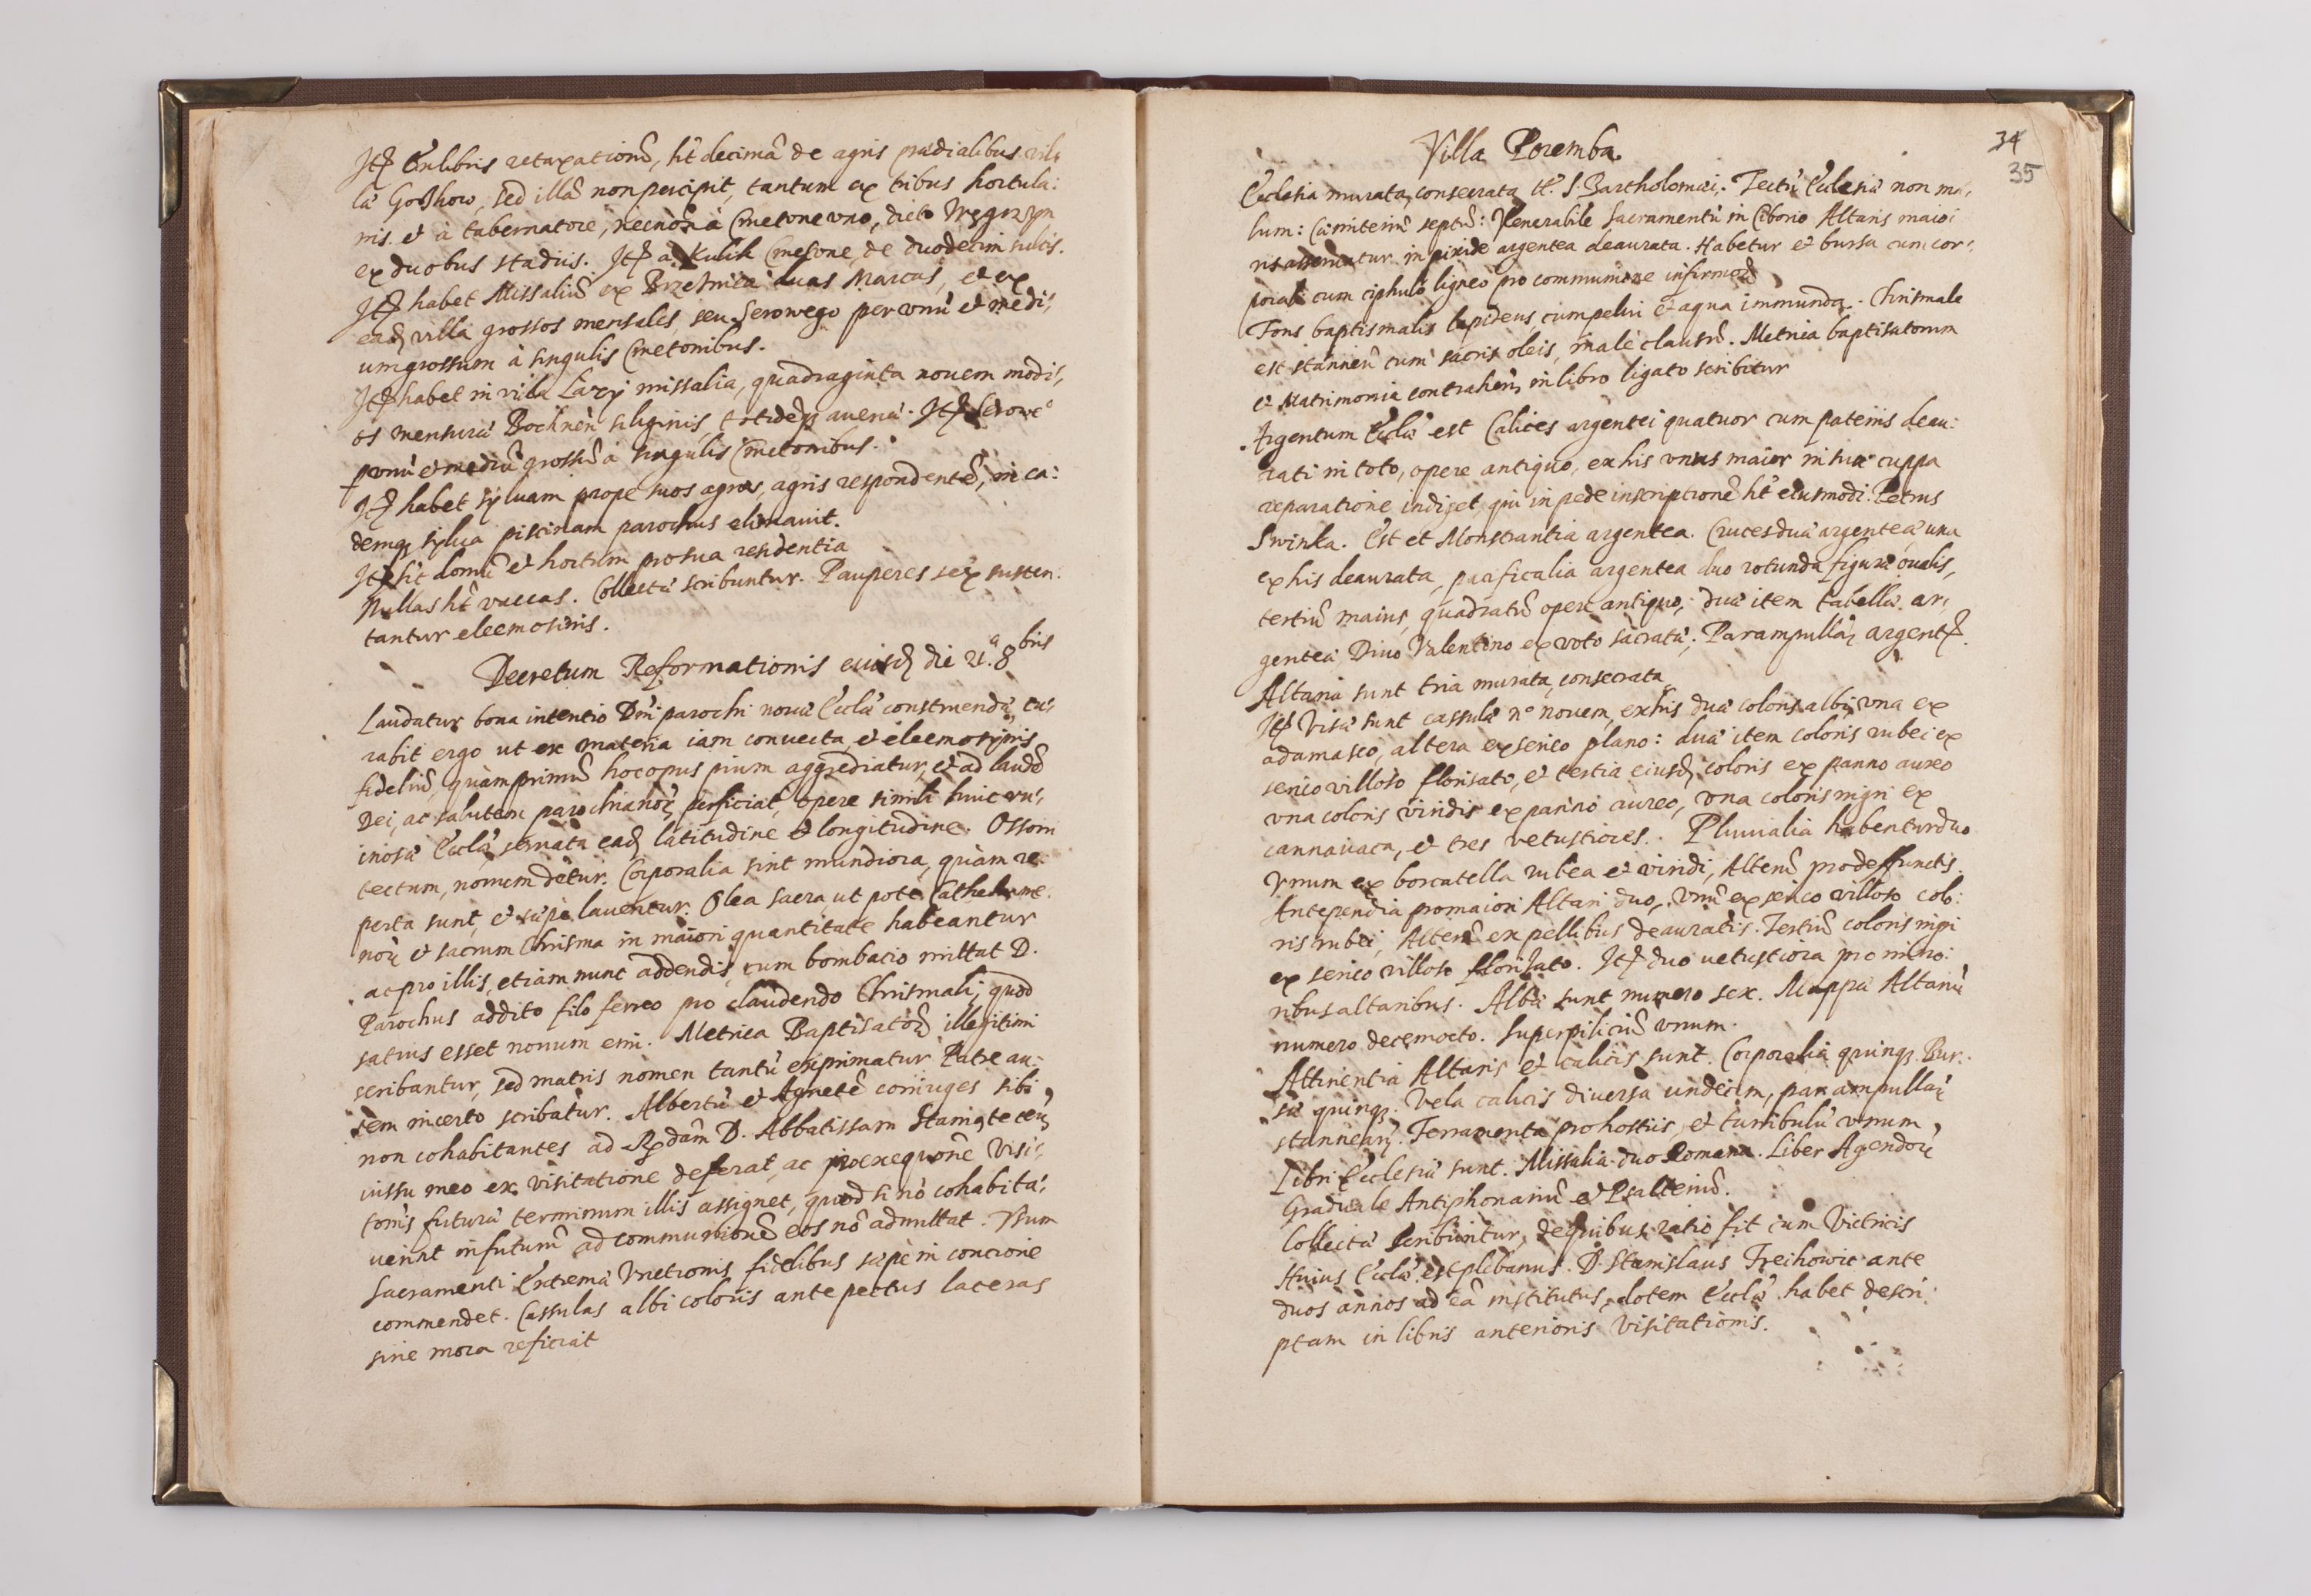 Itẽ In libris retaxationũ, hẽt decimã de agris prædialibus vil-
læ Goszkow, sed illã non percipit, tantum ex tribus hortula:
nis. et à tabernatore, necnõ à Cmetone vno, dicto Węgrzyn
ex duobus stadiis. Itẽ à Kulik Cmetone, de duodecim sulcis.
Itẽ habet Missaliũ ex Brzeźnica duas Marcas, et ex
eadẽ villa grossos mensales, seu Serowego per vnũ et medi:
um grossum à singulis Cmetonibus.
Itẽ habet in villa Łazy missalia, quadraginta nouem modi:
os mensuræ Bochnen̄ siliginis, totidẽqȝ auenæ. Itẽ Serowe°
p vnũ et mediũ grossũ à singulis Cmetonibus.
Itẽ habet syluam prope suos agros, agris respondentẽ, in ea:
demqȝ sylua piscinam parochus elimauit.
Itẽ hẽt domũ et hortum pro sua residentia
Nullas hẽt vaccas. Collectæ scribuntur. Pauperes sex susten:
tantur eleemosinis.
Decretum Reformationis eiusdẽ die 21.ª 8bris
Laudatur bona intentio Dñi parochi nouæ Eccłæ construendæ, cu:
rabit ergo ut ex materia iam conuecta, et eleemosynis
fidelium, quàm primũ hoc opus pium aggrediatur, et ad laudẽ
Dei, ac salutem parochianoꝝ perficiat, opere simili huic ru:
inosæ Eccłæ seruata eadẽ latitudine et longitudine. Ossorii
tectum, nouum detur. Corporalia sint mundiora, quàm re:
perta sunt, et sæpè lauentur. Olea sacra ut pote Cathechume:
noꝝ et sacrum Chrisma in maiori quantitate habeantur
ac pro illis, etiam nunc addendis, cum bombacio mittat D.
Parochus addito filo ferreo pro claudendo Chrismali, quod
satius esset nouum emi. Metrica Baptisatoꝝ illegitimi
scribantur, sed matris nomen tantũ exprimatur Patre au:
tem incerto scribatur. Albertũ et Agnetẽ coniuges sibi
non cohabitantes ad Rñdãm D. Abbatissam Staniątecen̄
iussu meo ex visitatione deferat, ac pro exequõne Visi:
tõnis futuræ terminum illis assignet, quod si nõ cohabita:
uerint in futurũ ad communionẽ eos nõ admittat. Vsum
Sacramenti Extremæ Vnctionis fidelibus sæpè in concione
commendet. Cassulas albi coloris ante pectus laceras
sine mora reficiat
34
35
Villa Poremba.
Ecclesia murata, consecrata, tt. S. Bartholomæi. Tectũ Ecclesiæ non ma:
lum: Cæmiteriũ septũ: Venerabile Sacramentũ in Ciborio Altaris maio:
ris asseruatur in pixide argentea deaurata. Habetur et bursa cum cor:
porali cum ciphulo ligneo pro communione infirmoꝝ
Fons baptismalis lapideus, cum pelui et aqua immunda. Chrismale
est stanneũ cum sacris oleis, malè clausũ. Metrica baptisatorum
et Matrimonia contrahen̄, in libro ligato scribitur
Argentum Eccłæ est Calices argentei quatuor cum patenis deau:
rati in toto, opere antiquo, ex his vnus maior in sua cuppa
reparatione indiget, qui in pede inscriptionẽ hẽt eiusmodi. Petrus
Swinka. Est et Monstrantia argentea. Cruces duæ argenteæ una
ex his deaurata, pacificalia argentea duo rotunda figuræ oualis,
tertiũ maius, quadratũ opere antiquo, duæ item tabellæ ar:
genteæ Diuo Valentino ex voto sacratæ: Par ampullaꝝ argentẽ.
Altaria sunt tria murata, consecrata
Itẽ Visæ sunt cassulæ n° nouem, ex his duæ coloris albi, vna ex
adamasco, altera ex serico plano: duæ item coloris rubei ex
serico villoso florisato, et tertia eiusdẽ coloris ex panno aureo
vna coloris viridis ex panno aureo, vna coloris nigri ex
cannauacza, et tres vetustiores. Pluuialia habentur duo
Vnum ex borcatella rubea et viridi, Alterũ pro deffunctis.
Antependia pro maiori Altari duo, vnũ ex serico villoso colo:
ris rubei, Alterũ ex pellibus deauratis. Tertiũ coloris nigri
ex serico villoso florisato. Itẽ duo uetustiora pro mino:
ribus altaribus. Albæ sunt numero sex. Mappæ Altariũ
numero decemocto. Superpiliciũ vnum.
Attinentia Altaris et calicis sunt. Corporalia quinqȝ. Bur:
sæ quinqȝ. Vela calicis diuersa undecim, par ampullaꝝ
stannearꝝ. Ferramenta pro hostiis, et turribulũ vnum,
Libri Ecclesiæ sunt. Missalia duo Romana. Liber Agendoꝝ
Graduale Antiphonariũ et Psalteriũ.
Collectæ scribuntur, de quibus ratio fit cum Victricis
Huius Eccłæ est plebanus. D. Stanislaus Treihowic ante
duos annos ad eã institutus, dotem Eccłæ habet descri:
ptam in libris anterioris Visitationis.